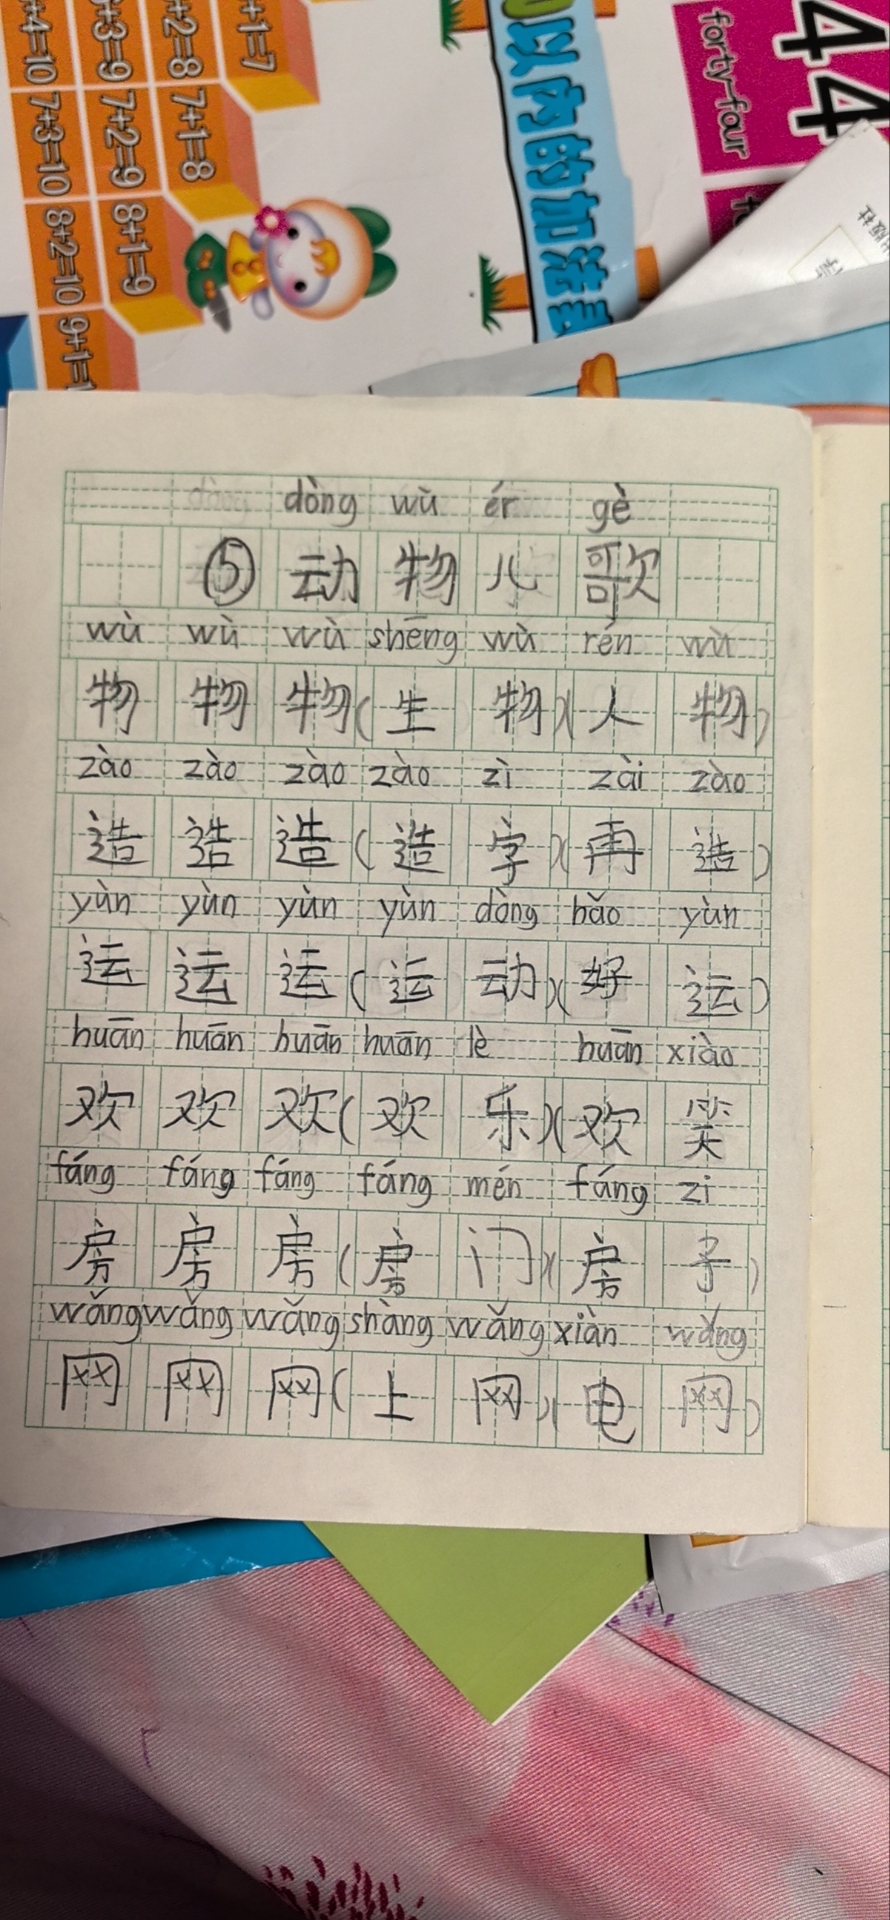 +1=7
+2=8 7+1=8
+3=9 7+2=9 8+1=9
+4=10 7+3=10 8+2=10 9+1=1
以内的加法
44
forty-four
出版社
dòng wù ér gè
⑤ 动 物 儿 歌
wù wù wù shēng wù rén wù
物 物 物(生 物)(人 物)
zào zào zào zào zì zài zào
造 造 造(造 字)(再 造)
yùn yùn yùn yùn dòng hǎo yùn
运 运 运(运 动)(好 运)
huān huān huān huān lè huān xiào
欢 欢 欢(欢 乐)(欢 笑
fáng fáng fáng fáng mén fáng zi
房 房 房(房 门)(房 子)
wǎng wǎng wǎng shàng wǎng xiàn wǎng
网 网 网(上 网)(电 网)